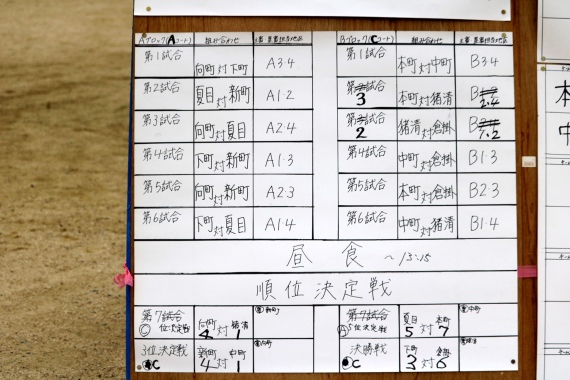 Aブロック(Aコート) 組み合わせ Bブロック(Cコート) 組み合わせ
第1試合 向町対下町 A3・4 第1試合 本町対中町 B3・4
第2試合 夏目対新町 A1・2 3 本町対猪清 B 2・4
第3試合 向町対夏目 A2・4 2 猪清対倉掛 B 1・2
第4試合 下町対新町 A1・3 第4試合 中町対倉掛 B1・3
第5試合 向町対新町 A2・3 第5試合 本町対倉掛 B2・3
第6試合 下町対夏目 A1・4 第6試合 中町対猪清 B1・4
昼食 〜13:15
順位決定戦
第7試合 向町 対 猪清 第7試合 夏目 対 本町
C 位決定戦 4 1 A 5位決定戦 5 7
3位決定戦 新町 対 中町 決勝戦 下町 対 倉掛
C 4 1 C 3 6